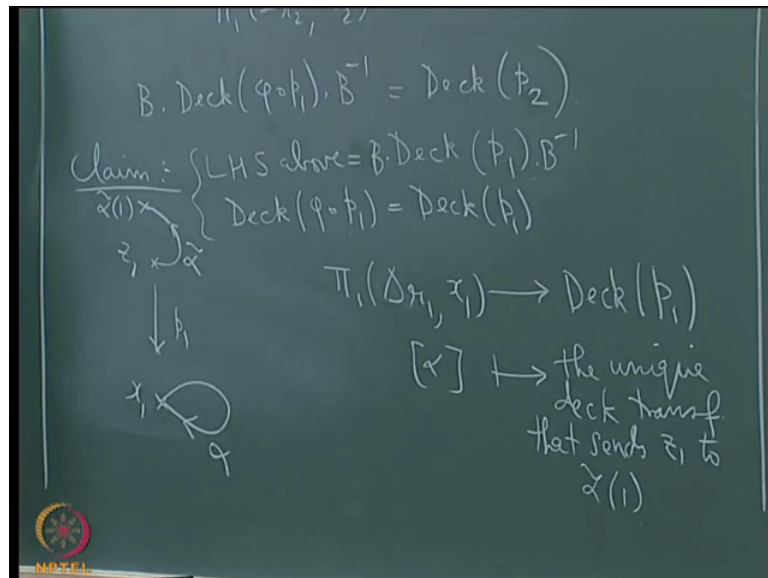 B. Deck(φ∘p₁). B⁻¹ = Deck(p₂)
Claim: { LHS above = B. Deck(p₁). B⁻¹
Deck(φ∘p₁) = Deck(p₁)
α̃(1)
z₁ α̃
p₁
x₁
α
Π₁(Δr₁, x₁) → Deck(p₁)
[α] ↦ the unique
deck transf.
that sends z₁ to
α̃(1)
NPTEL